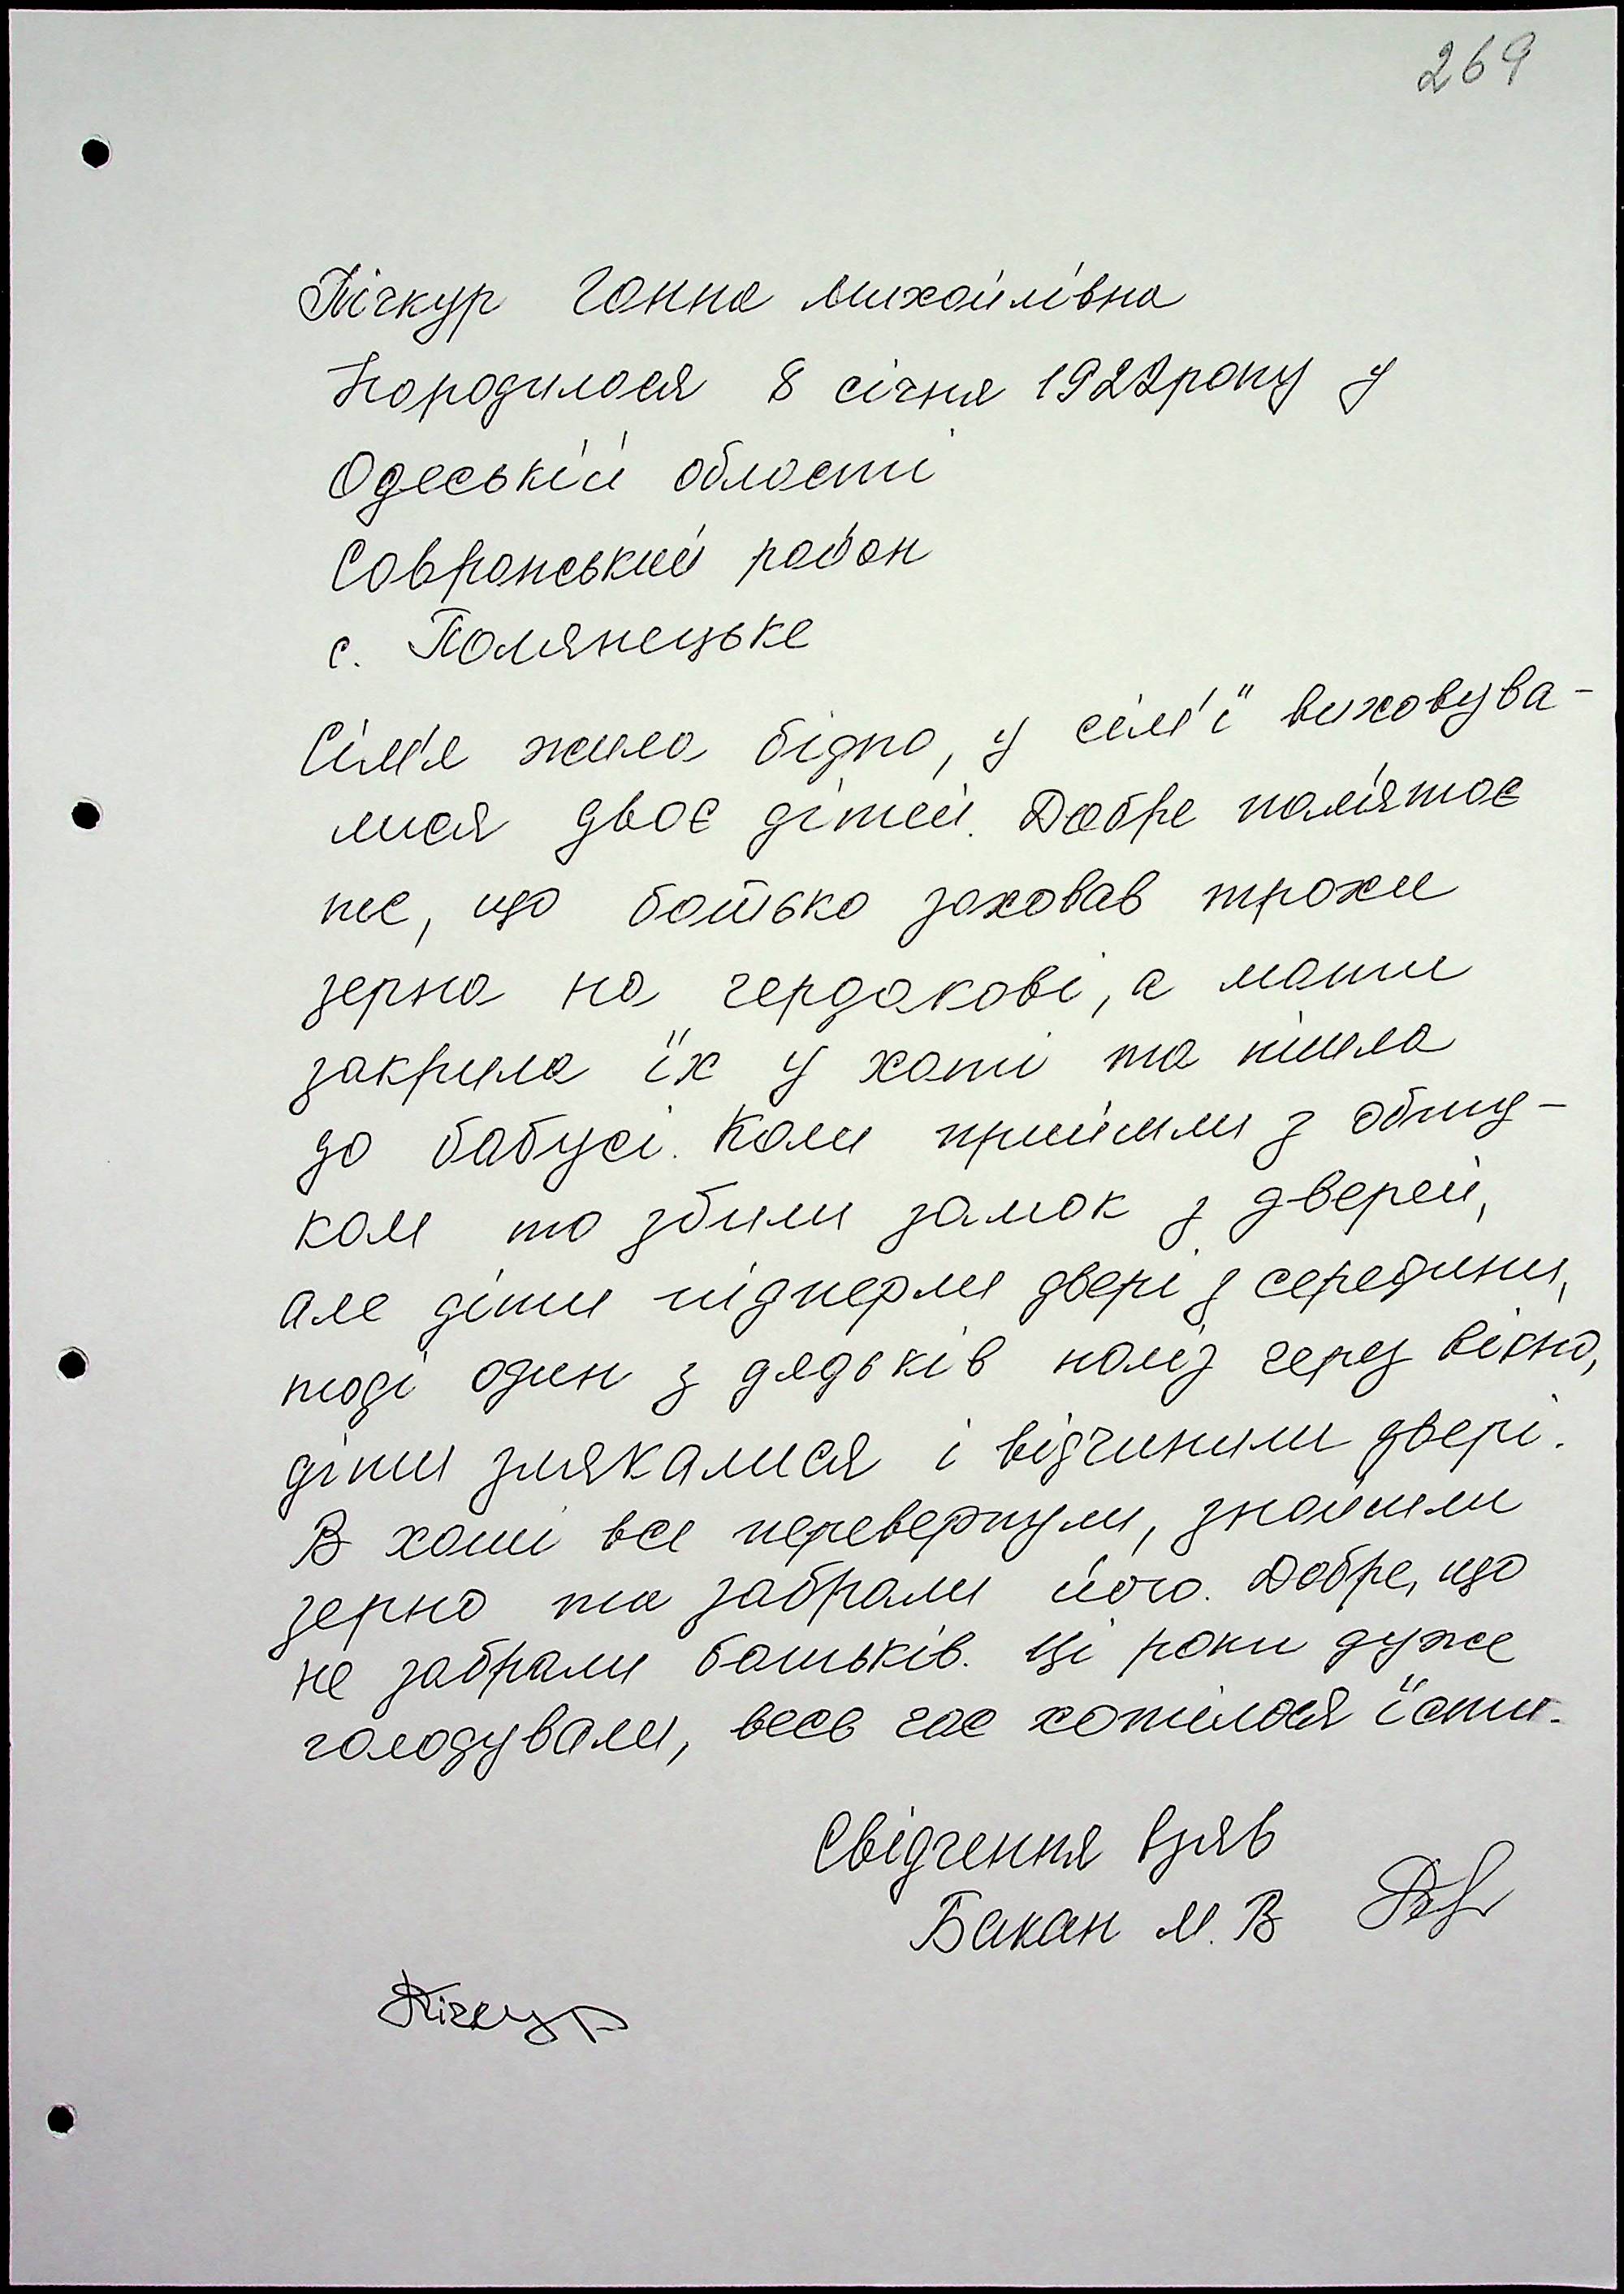 269
Пічкур Ганна Михайлівна
Народилася 8 січня 1922 року у
Одеській області
Савранський район
с. Полянецьке
Сім'я жила бідно, у сім'ї виховува-
лися двоє дітей. Добре пам'ятає
те, що батько заховав трохи
зерна на чердакові, а мати
закрила їх у хаті та пішла
до бабусі. Коли прийшли з обшу-
ком то збили замок з дверей,
але діти підперли двері з середини,
тоді один з дядьків поліз через вікно,
діти злякалися і відчинили двері.
В хаті все перевернули, знайшли
зерно та забрали його. Добре, що
не забрали батьків. Ці роки дуже
голодували, весь час хотілося їсти.
Свідчення взяв
Бакан М. В
Пічкур